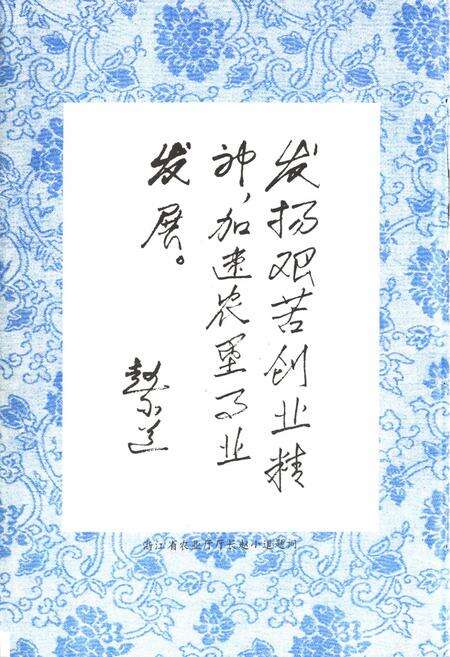 发扬艰苦创业精
神，加速农垦事业
发展。
赵小道
浙江省农业厅厅长赵小道题词